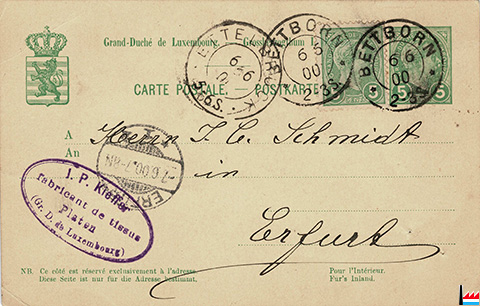 Grand-Duché de Luxembourg.
BETTBORN
6 6
00
2-3S
BETTBORN
6 6
00
2-3S
ETTELBRUCK
6/6
5-6S.
CARTE POSTALE.
POSTKARTE
5
5
A
An
Herrn J. C. Schmidt
in
Erfurt
7.6.00.7-8N
J. P. Kieffer
fabricant de tissus
Platen
(Gr. D. de Luxembourg)
NB. Ce côté est réservé exclusivement à l'adresse.
Diese Seite ist nur für die Adresse bestimmt.
Pour l'intérieur.
Für's Inland.